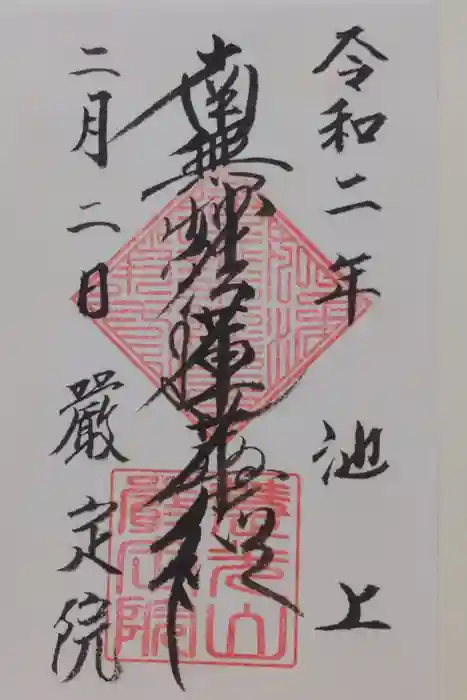 令和二年 池上
南無妙法蓮華経
二月二日 嚴定院
嚴定院